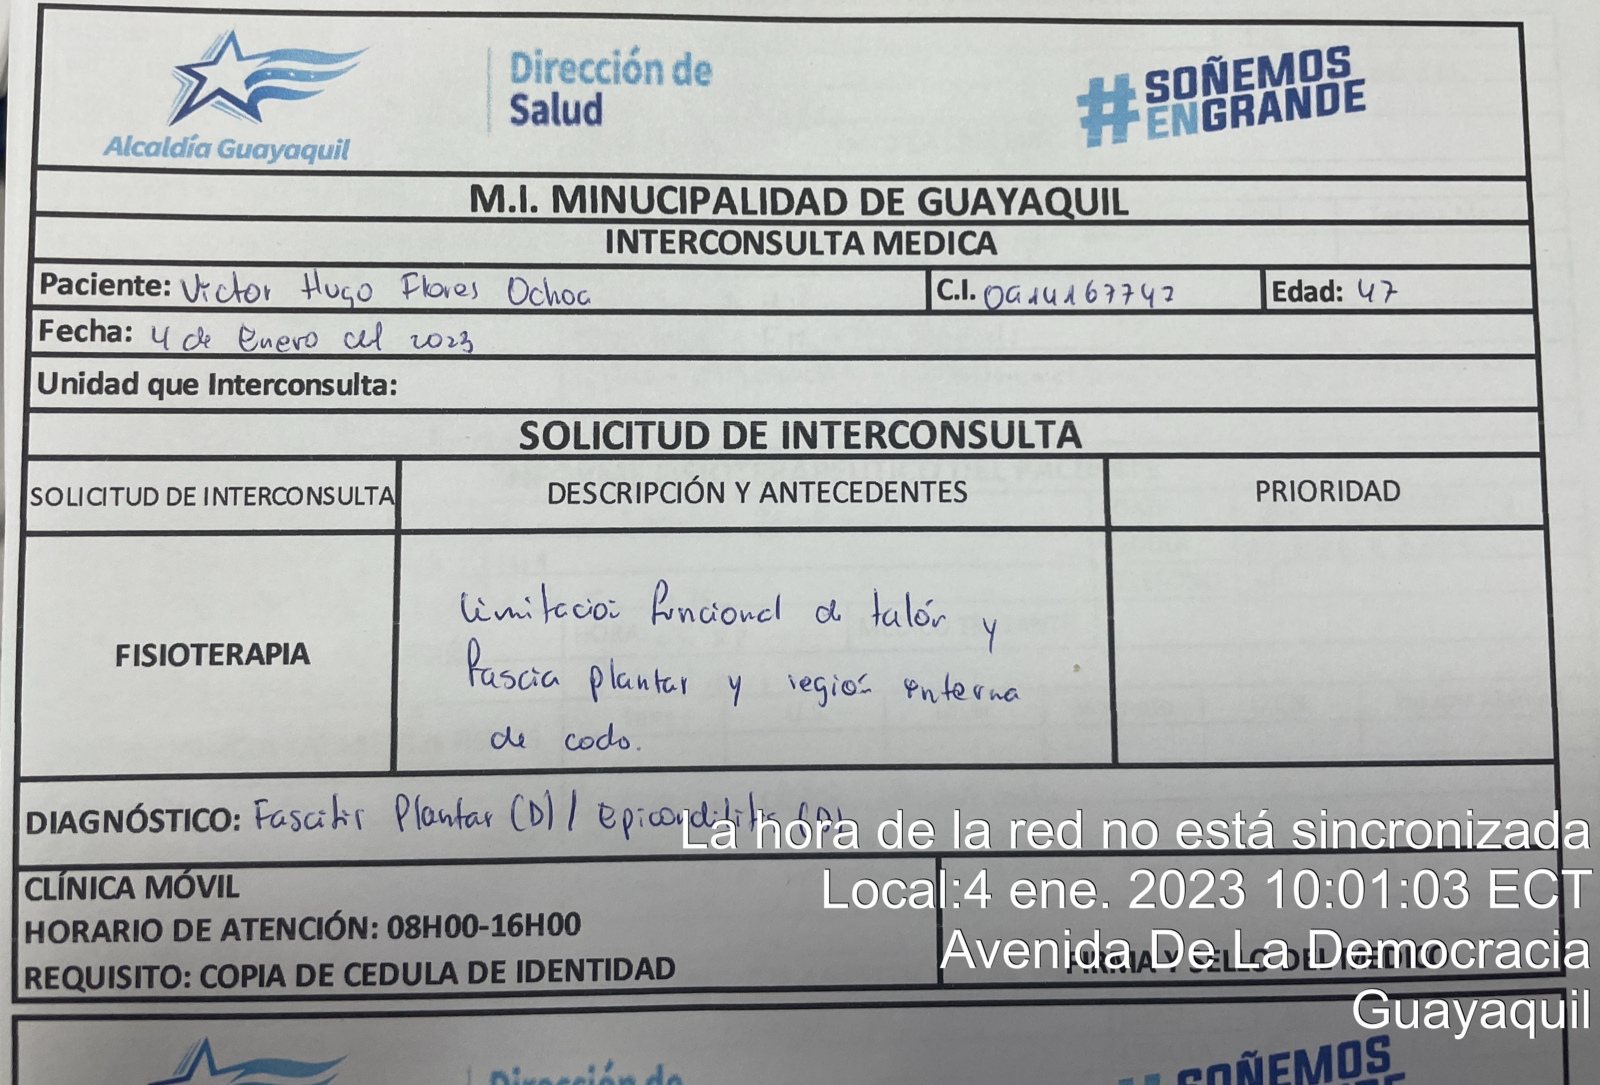 Alcaldía Guayaquil
Dirección de
Salud
#SOÑEMOS
ENGRANDE
M.I. MINUCIPALIDAD DE GUAYAQUIL
INTERCONSULTA MEDICA
Paciente: Victor Hugo Flores Ochoa C.I. 0914167742 Edad: 47
Fecha: 4 de Enero del 2023
Unidad que Interconsulta:
SOLICITUD DE INTERCONSULTA
SOLICITUD DE INTERCONSULTA DESCRIPCIÓN Y ANTECEDENTES PRIORIDAD
FISIOTERAPIA
Limitación funcional de talón y
fascia plantar y región externa
de codo.
DIAGNÓSTICO: Fascitis Plantar (D) / Epicondilitis (D)
CLÍNICA MÓVIL
HORARIO DE ATENCIÓN: 08H00-16H00
REQUISITO: COPIA DE CEDULA DE IDENTIDAD
FIRMA Y SELLO DEL MEDICO
La hora de la red no está sincronizada
Local:4 ene. 2023 10:01:03 ECT
Avenida De La Democracia
Guayaquil
Dirección de
SOÑEMOS